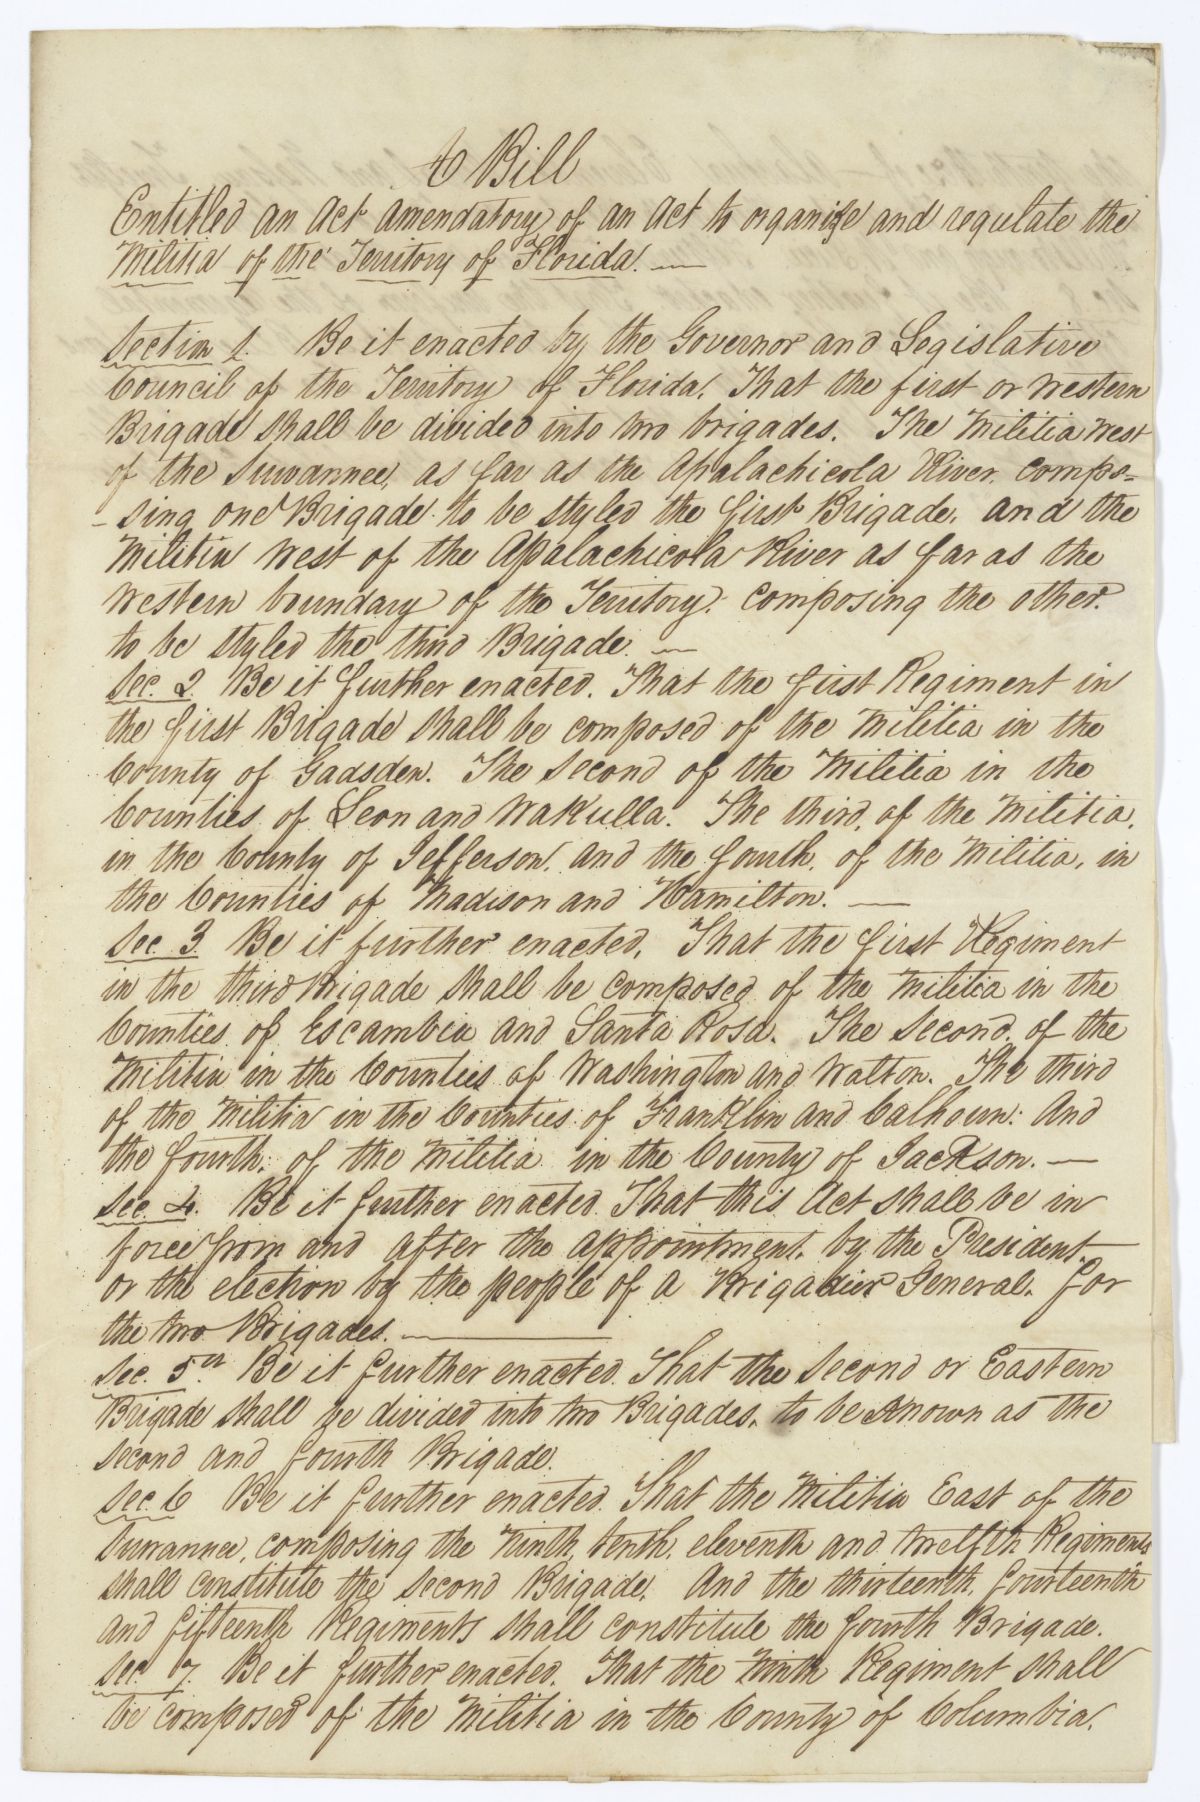 A Bill
Entitled an Act amendatory of an Act to organize and regulate the
Militia of the Territory of Florida. —
Section 1. Be it enacted by the Governor and Legislative
Council of the Territory of Florida. That the first or Western
Brigade shall be divided into two brigades. The Militia West
of the Suwannee, as far as the Apalachicola River, compo-
-sing one Brigade to be styled the first Brigade, and the
Militia West of the Apalachicola River as far as the
Western boundary of the Territory, composing the other,
to be styled the third Brigade. —
Sec. 2. Be it further enacted. That the first Regiment in
the first Brigade shall be composed of the Militia in the
County of Gadsden. The Second of the Militia in the
Counties of Leon and Wakulla. The third, of the Militia,
in the County of Jefferson, and the fourth, of the Militia, in
the Counties of Madison and Hamilton. —
Sec. 3. Be it further enacted, That the first Regiment
in the third Brigade shall be composed of the Militia in the
Counties of Escambia and Santa Rosa. The Second, of the
Militia in the Counties of Washington and Walton. The third
of the Militia in the Counties of Franklin and Calhoun: And
the fourth, of the Militia in the County of Jackson. —
Sec. 4. Be it further enacted That this Act shall be in
force from and after the appointment, by the President,
or the election by the people of a Brigadier General, for
the two Brigades. —
Sec. 5th Be it further enacted That the Second or Eastern
Brigade shall be divided into two Brigades, to be known as the
Second and fourth Brigade.
Sec. 6 Be it further enacted. That the Militia East of the
Suwannee, composing the Ninth, tenth, eleventh and twelfth Regiments
shall constitute the Second Brigade, And the thirteenth, fourteenth
and fifteenth Regiments shall constitute the fourth Brigade.
Sec. 7. Be it further enacted. That the Ninth Regiment shall
be composed of the Militia in the County of Columbia.